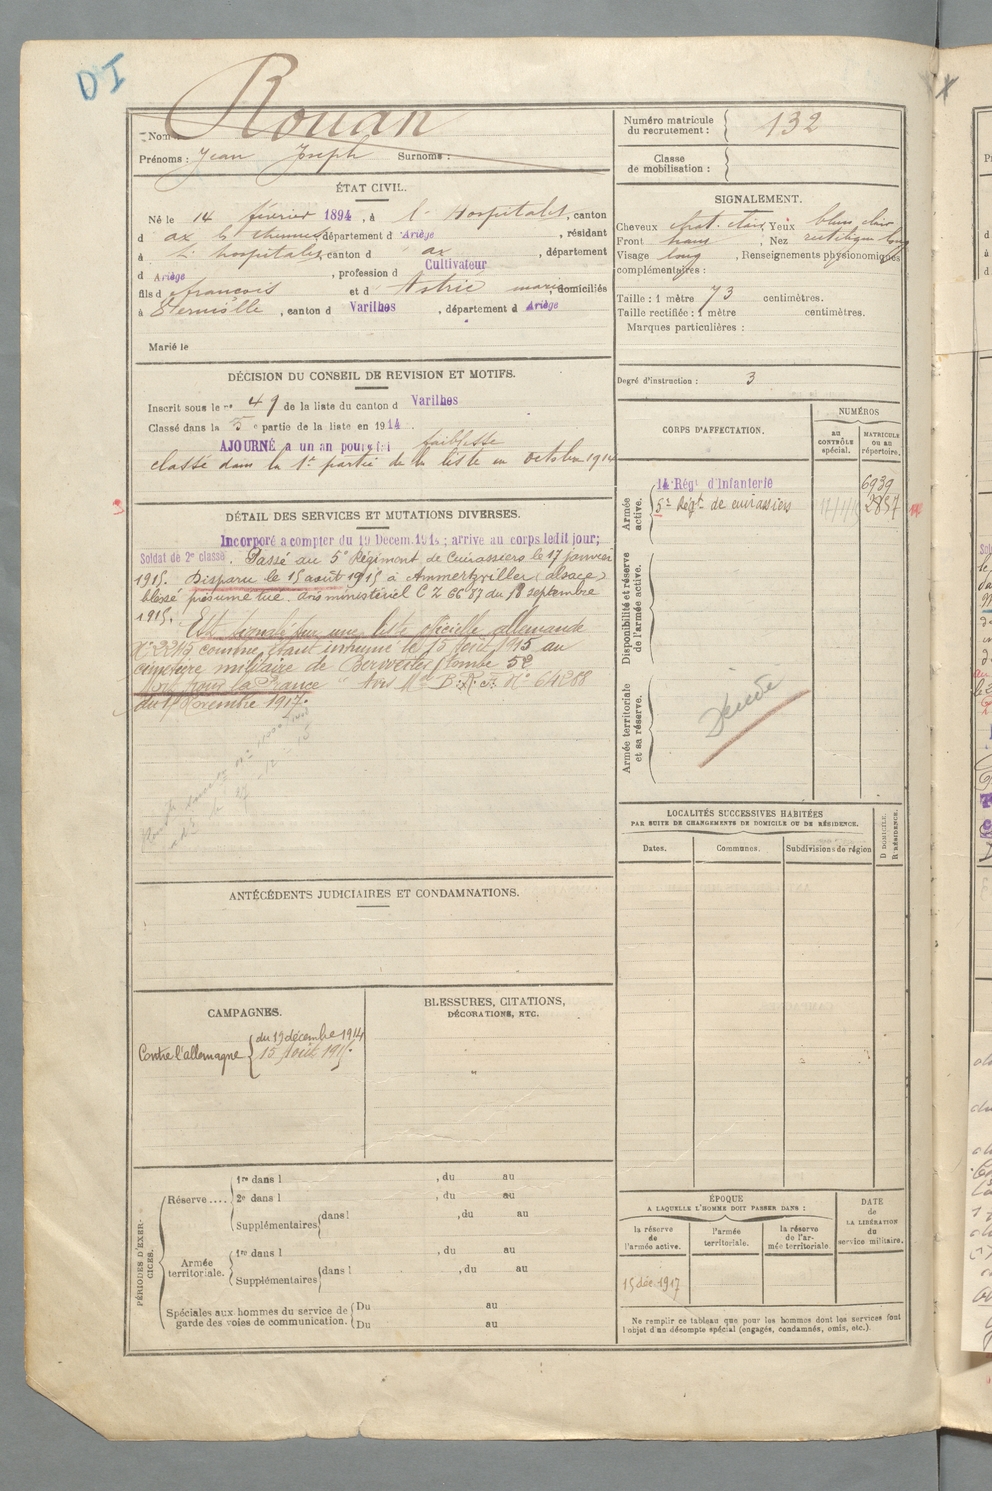 DI
Nom : Rouan
Prénoms : Jean Joseph Surnoms :
ÉTAT CIVIL.
Né le 14 février 1894, à l'Hospitalet, canton
d ax les thermes département d Ariège, résidant
à l'hospitalet, canton d ax, département
d Ariège, profession d Cultivateur
fils d françois et d Astrié marie, domiciliés
à , canton d Varilhes, département d Ariège
Marié le
DÉCISION DU CONSEIL DE REVISION ET MOTIFS.
Inscrit sous le n° 49 de la liste du canton d Varilhes
Classé dans la 5e partie de la liste en 1914.
AJOURNÉ a un an pour faiblesse
classé dans la 1re partie de la liste en octobre 1914
DÉTAIL DES SERVICES ET MUTATIONS DIVERSES.
Incorporé a compter du 19 Décem. 1914; arrivé au corps ledit jour;
Soldat de 2e classe. Passé au 5e Régiment de Cuirassiers le 17 janvier
1915. Disparu le 15 août 1915 à Ammertzviller (alsace)
blessé présumé tué. avis ministériel C Z 6687 du 18 septembre
1915. Est signalé sur une liste officielle allemande
N° 2245 comme étant inhumé le 15 Août 1915 au
cimetière militaire de tombe 52
Mort pour la France Avis Mel B.R.F. N° 64208
du 17 Novembre 1917.
ANTÉCÉDENTS JUDICIAIRES ET CONDAMNATIONS.
CAMPAGNES.
Contre l'allemagne du 19 décembre 1914
15 Août 1915.
BLESSURES, CITATIONS,
DÉCORATIONS, ETC.
PÉRIODES D'EXERCICES.
Réserve.... 1re dans l , du au
2e dans l , du au
Supplémentaires dans l , du au
Armée territoriale. 1re dans l , du au
Supplémentaires dans l , du au
Spéciales aux hommes du service de Du au
garde des voies de communication. Du au
Numéro matricule
du recrutement : 132
Classe
de mobilisation :
SIGNALEMENT.
Cheveux chat. clair, Yeux bleu clair
Front haut, Nez rectiligne long
Visage long, Renseignements physionomiques
complémentaires :
Taille : 1 mètre 73 centimètres.
Taille rectifiée : 1 mètre centimètres.
Marques particulières :
Degré d'instruction : 3
CORPS D'AFFECTATION.
NUMÉROS
AU CONTRÔLE spécial.
MATRICULE OU AU répertoire.
Armée active.
14e Régt d'Infanterie 6939
5e Régt de cuirassiers 2857
Disponibilité et réserve de l'armée active.
Armée territoriale et sa réserve.
Décédé
LOCALITÉS SUCCESSIVES HABITÉES
PAR SUITE DE CHANGEMENTS DE DOMICILE OU DE RÉSIDENCE.
Dates. Communes. Subdivisions de région
D DOMICILE. R RÉSIDENCE.
ÉPOQUE
A LAQUELLE L'HOMME DOIT PASSER DANS :
la réserve de l'armée active.
l'armée territoriale.
la réserve de l'armée territoriale.
DATE
de
LA LIBÉRATION
du
service militaire.
15 déc. 1917
Ne remplir ce tableau que pour les hommes dont les services font
l'objet d'un décompte spécial (engagés, condamnés, omis, etc.).